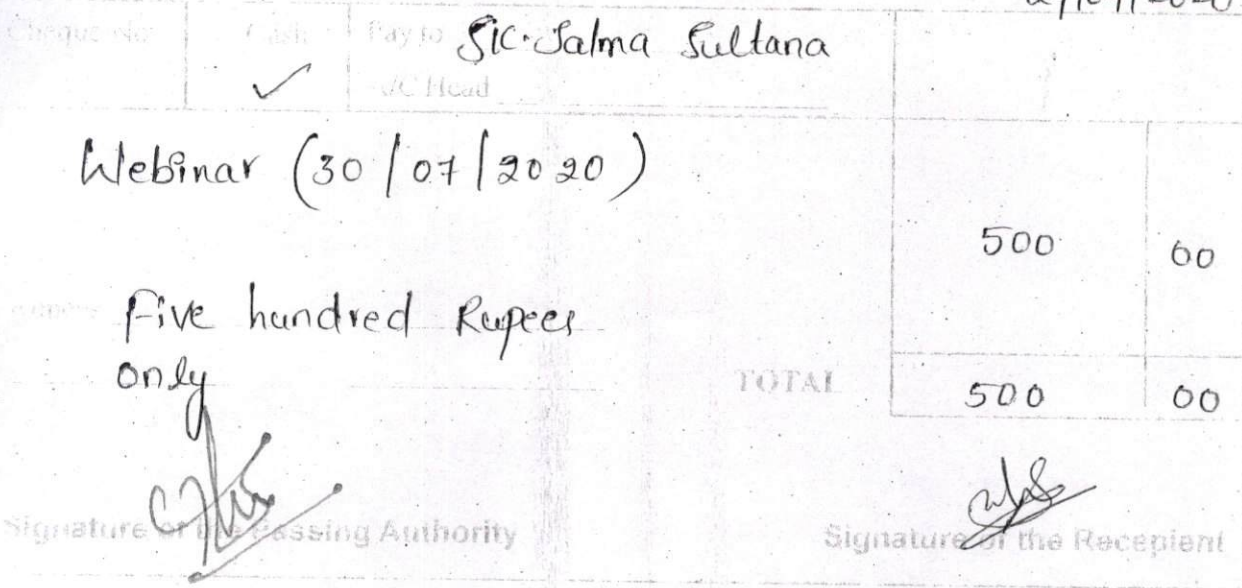 Cheque No. Cash Pay to SK. Salma Sultana
✓ A/C Head
Webinar (30/07/2020)
500 00
Five hundred Rupees
only
TOTAL 500 00
Signature of the Passing Authority Signature of the Recepient